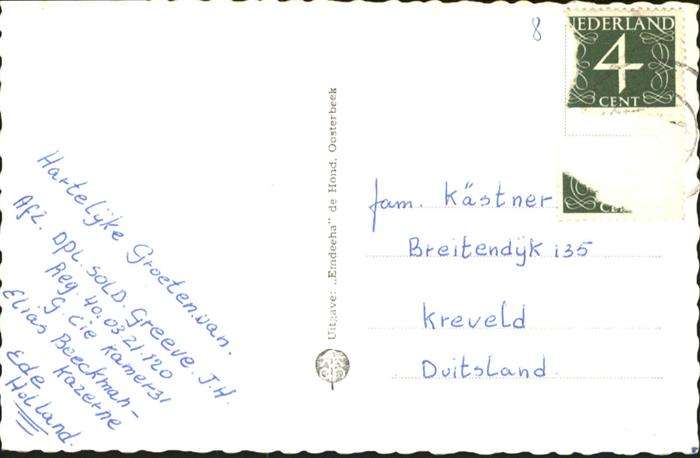 8
NEDERLAND
4
CENT
Hartelijke Groeten.van.
Afz. Dpl. SOLD. Greeve. J.H.
Reg. 40.03.21.120
G. cie kamer31
Elias Beeckman-
Kazerne
Ede
Holland.
Uitgave: „Emdeeha” de Hond, Oosterbeek
fam. Kästner
Breitendijk 135
Kreveld
Duitsland